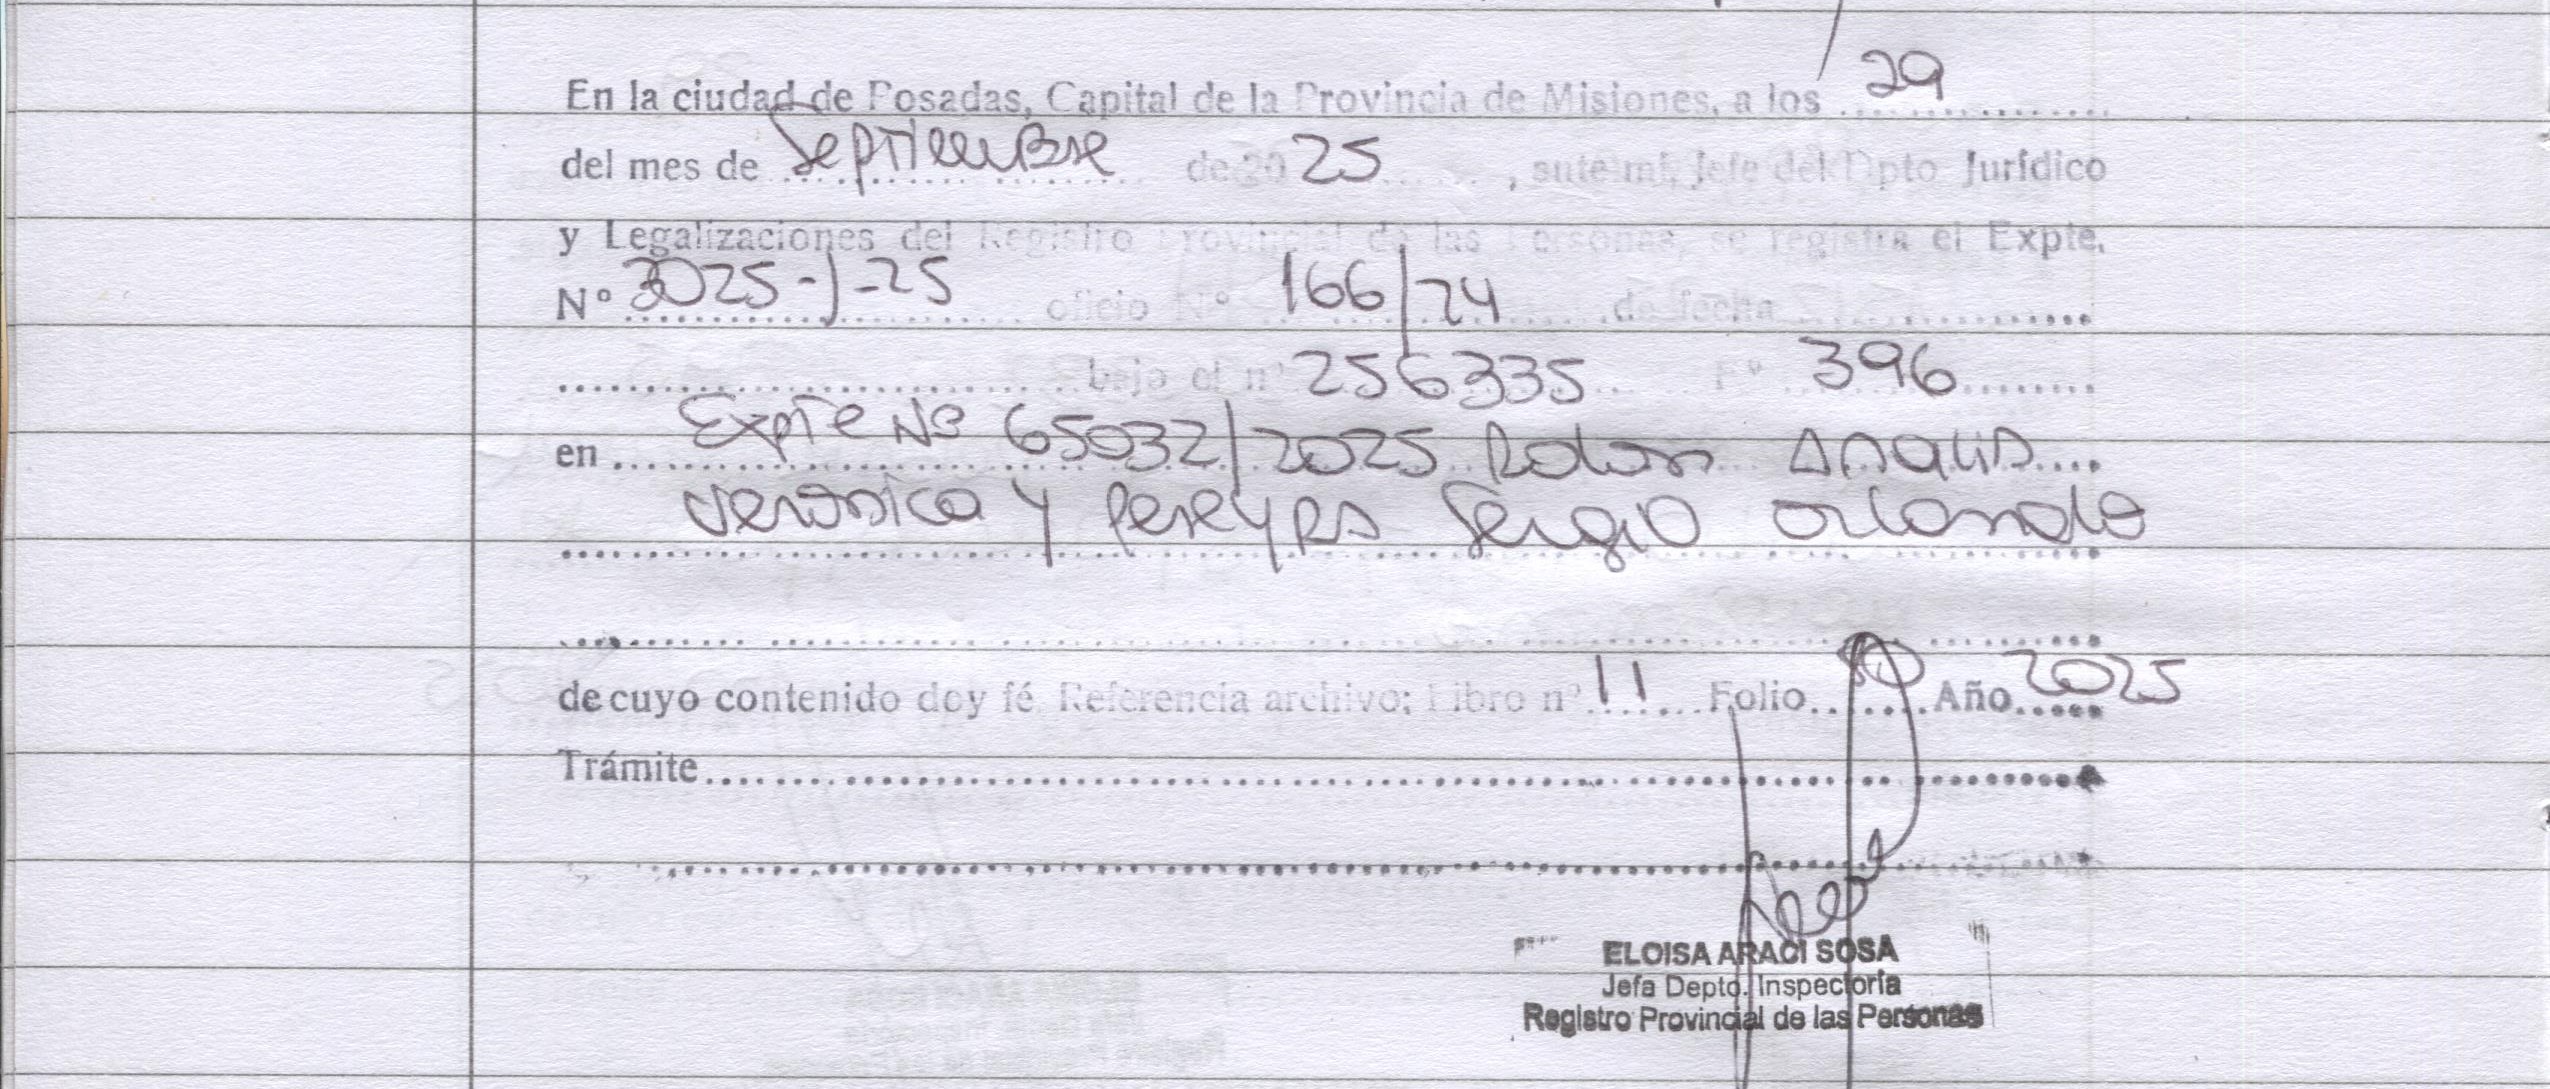 En la ciudad de Posadas, Capital de la Provincia de Misiones, a los 29
del mes de Septiembre de 20 25, ante mi, Jefe del Dpto Jurídico
y Legalizaciones del Registro Provincial de las Personas, se registra el Expte.
Nº 3025-J-25 oficio Nº 166/24 de fecha
bajo el nº 256335 Fº 396
en Expte Nº 65032/2025 Rolon Analia
Veronica y Pereyra Sergio Orlando
de cuyo contenido doy fé Referencia archivo; Libro nº 11 Folio Año 2025
Trámite
ELOISA ARACI SOSA
Jefa Depto. Inspectoría
Registro Provincial de las Personas